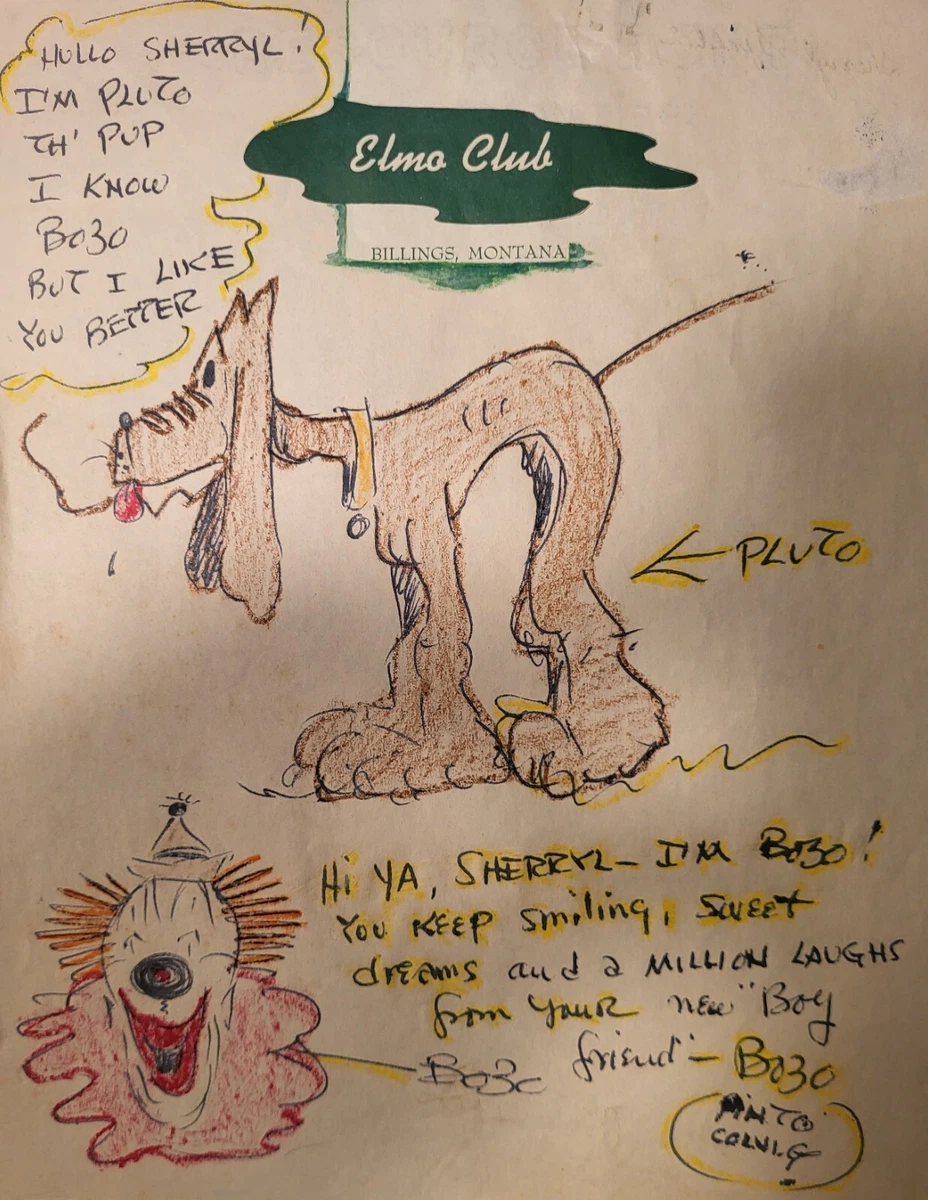 HULLO SHERRYL!
I'M PLUTO
TH' PUP
I KNOW
BOZO
BUT I LIKE
YOU BETTER
Elmo Club
BILLINGS, MONTANA
PLUTO
Hi YA, SHERRYL— I'M BOZO!
YOU KEEP smiling, SWEET
dreams and a MILLION LAUGHS
from YOUR new "Boy
friend"— BOZO
BOZO
PINTO
COLVIG